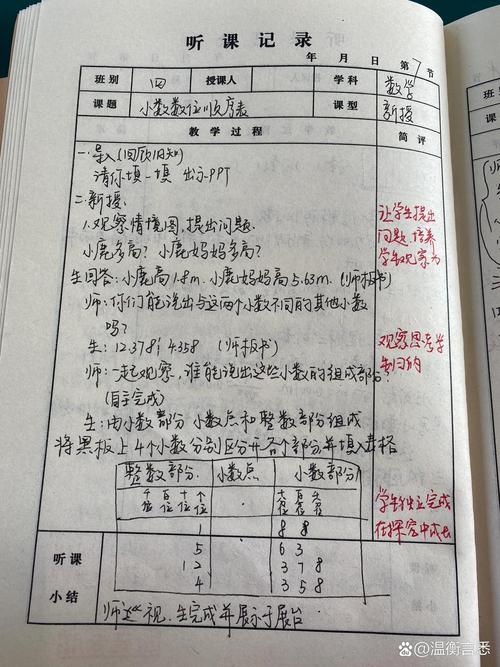 听课记录
年 月 日 第7节
班别 四 授课人 学科 数学
课题 小数数位顺序表 课型 新授
教学过程 简评
一.导入(回顾旧知)
请你填一填 出示PPT
二.新授.
1.观察情境图,提出问题.
小鹿多高? 小鹿妈妈多高?
生回答:小鹿高1.8m.小鹿妈妈高5.63m.(师板书)
师:你们能说出与这两个小数不同的其他小数
吗?
生:12.378, 4.358 (师板书)
师:一起观察,谁能说出这些小数的组成部分?
(自主完成)
生:由小数部分 小数点和整数部分组成
将黑板上4个小数分别区分开各个部分并填入表格
整数部分. 小数点 小数部分
千位 百位 十位 个位 .
1 8 8
5 6 3
12 3 7 8
4 3 5 8
师巡视.生完成并展示于展台
让学生提出
问题.培养
学生观察
观察思考学
生归纳
学生独立完成
在探究中成长
听课
小结
@温衡言悉